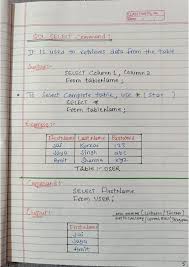 SQL SELECT Command :
It is used to retrieve data from the table
Syntax:-
SELECT Column 1, Column 2
From tablename ;
To Select Complete table, use * (star)
SELECT *
From tablename ;
Example:-
FirstName LastName Business
Jai Kumar 123
Jaya Singh abc
Amit Sharma xyz
Table :- USER
Command:
SELECT FirstName
From USER ;
Output:
FirstName
Jai
Jaya
Amit